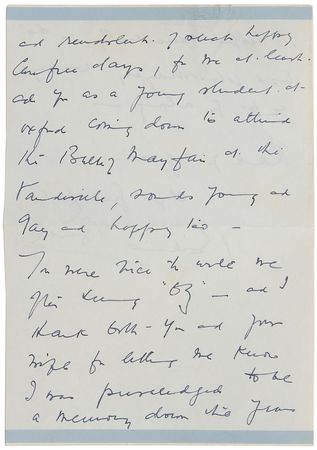 ad reminiscent. of such happy
Carefree days, for me at least.
ad you as a young student at
oxford coming down to attend
the Belle of Mayfair at the
Vaudeville, sounds young ad
gay ad happy too –
You were nice to write me
after seeing "69" – ad I
thank both – You ad your
wife for letting me know
I was priviledged to be
a memory down the years